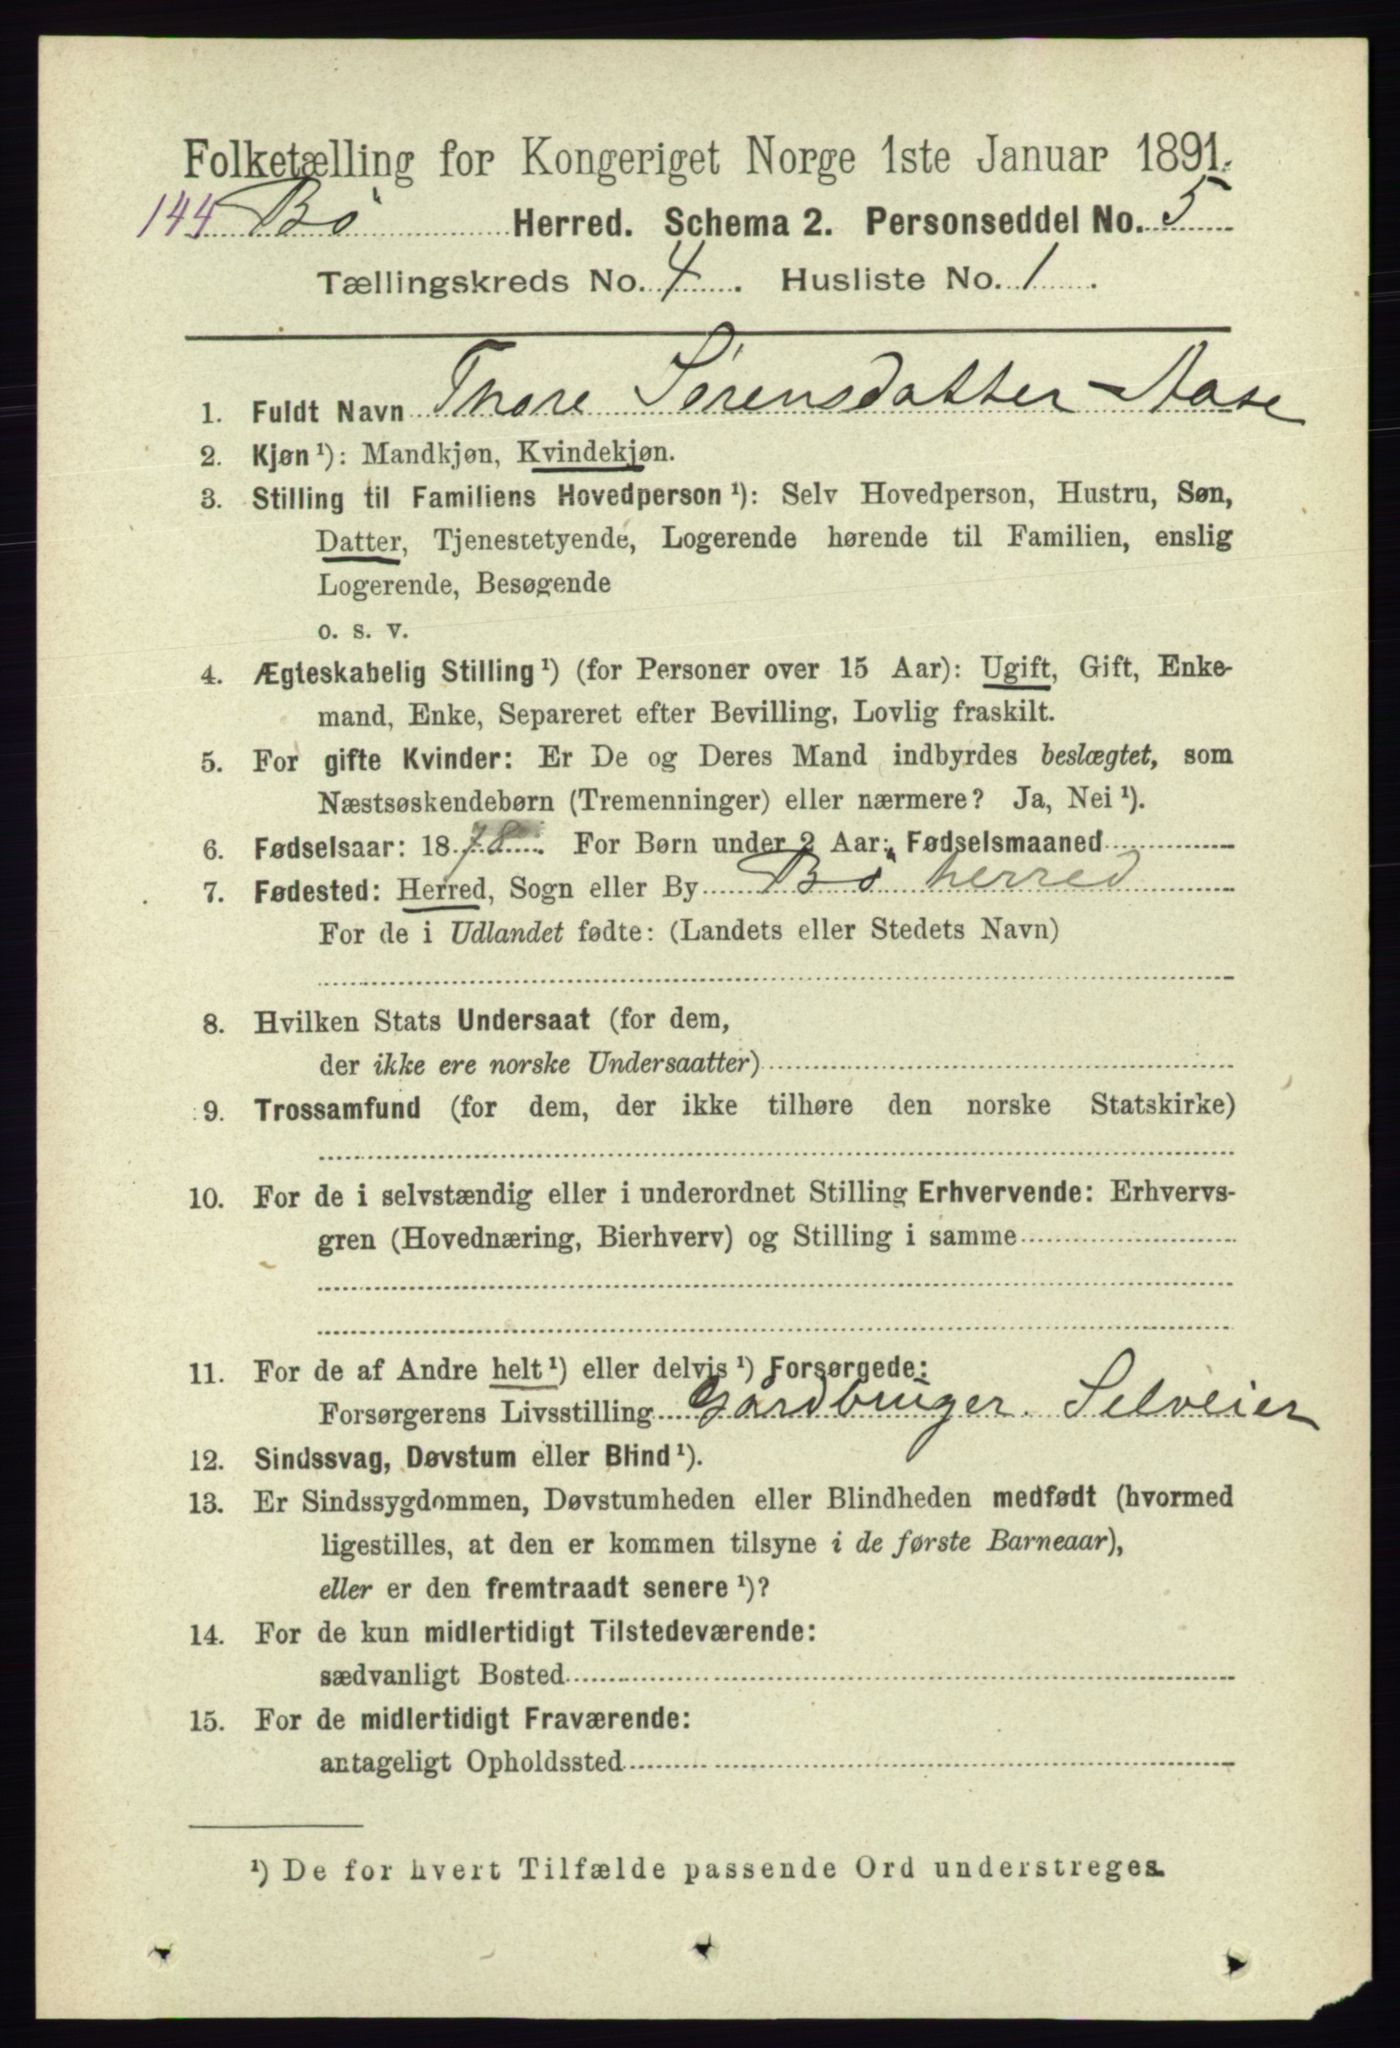 Folketælling for Kongeriget Norge 1ste Januar 1891.
144 Bö Herred. Schema 2. Personseddel No. 5
Tællingskreds No. 4. Husliste No. 1.
1. Fuldt Navn Thore Sörensdatter Aase
2. Kjøn ¹): Mandkjøn, Kvindekjøn.
3. Stilling til Familiens Hovedperson ¹): Selv Hovedperson, Hustru, Søn,
Datter, Tjenestetyende, Logerende hørende til Familien, enslig
Logerende, Besøgende
o. s. v.
4. Ægteskabelig Stilling ¹) (for Personer over 15 Aar): Ugift, Gift, Enke-
mand, Enke, Separeret efter Bevilling, Lovlig fraskilt.
5. For gifte Kvinder: Er De og Deres Mand indbyrdes beslægtet, som
Næstsøskendebørn (Tremenninger) eller nærmere? Ja, Nei ¹).
6. Fødselsaar: 1878. For Børn under 2 Aar: Fødselsmaaned
7. Fødested: Herred, Sogn eller By Bö herred
For de i Udlandet fødte: (Landets eller Stedets Navn)
8. Hvilken Stats Undersaat (for dem,
der ikke ere norske Undersaatter)
9. Trossamfund (for dem, der ikke tilhøre den norske Statskirke)
10. For de i selvstændig eller i underordnet Stilling Erhvervende: Erhvervs-
gren (Hovednæring, Bierhverv) og Stilling i samme
11. For de af Andre helt ¹) eller delvis ¹) Forsørgede:
Forsørgerens Livsstilling Gårdbruger. Selveier
12. Sindssvag, Døvstum eller Blind ¹).
13. Er Sindssygdommen, Døvstumheden eller Blindheden medfødt (hvormed
ligestilles, at den er kommen tilsyne i de første Barneaar),
eller er den fremtraadt senere ¹)?
14. For de kun midlertidigt Tilstedeværende:
sædvanligt Bosted
15. For de midlertidigt Fraværende:
antageligt Opholdssted
¹) De for hvert Tilfælde passende Ord understreges.